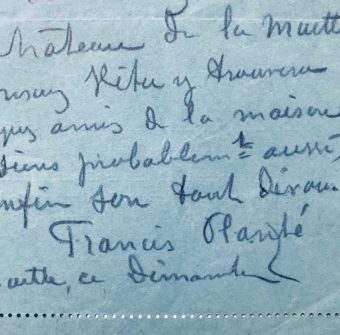 château de la Muett
Vétu y trouvera
ques amis de la maison
siens probablemt aussi,
enfin son tout dévou
Francis Planté
uette, ce Dimanche